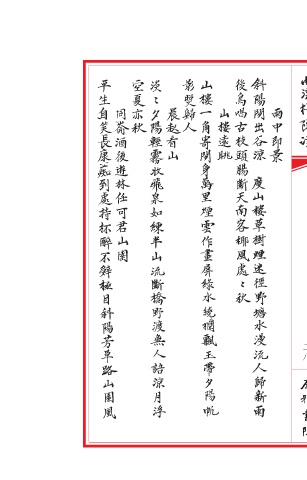 雨中即景
斜陽閃出谷涼 度山樓草樹煙迷徑野塘水漫流人歸新雨
後鳥唱古枝頭腸斷天南客椰風處々秋
山樓遠眺
山樓一角寄閒身萬里煙雲作畫屏綠水繞欄飄玉帶夕陽帆
影雙歸人
晨起看山
淡々夕陽輕霧收飛泉如練半山流斷橋野渡無人語涼月浮
空夏亦秋
同崙酒後遊林任可君山園
平生自笑長康癡到處持杯醉不辭極目斜陽芳草路山園風